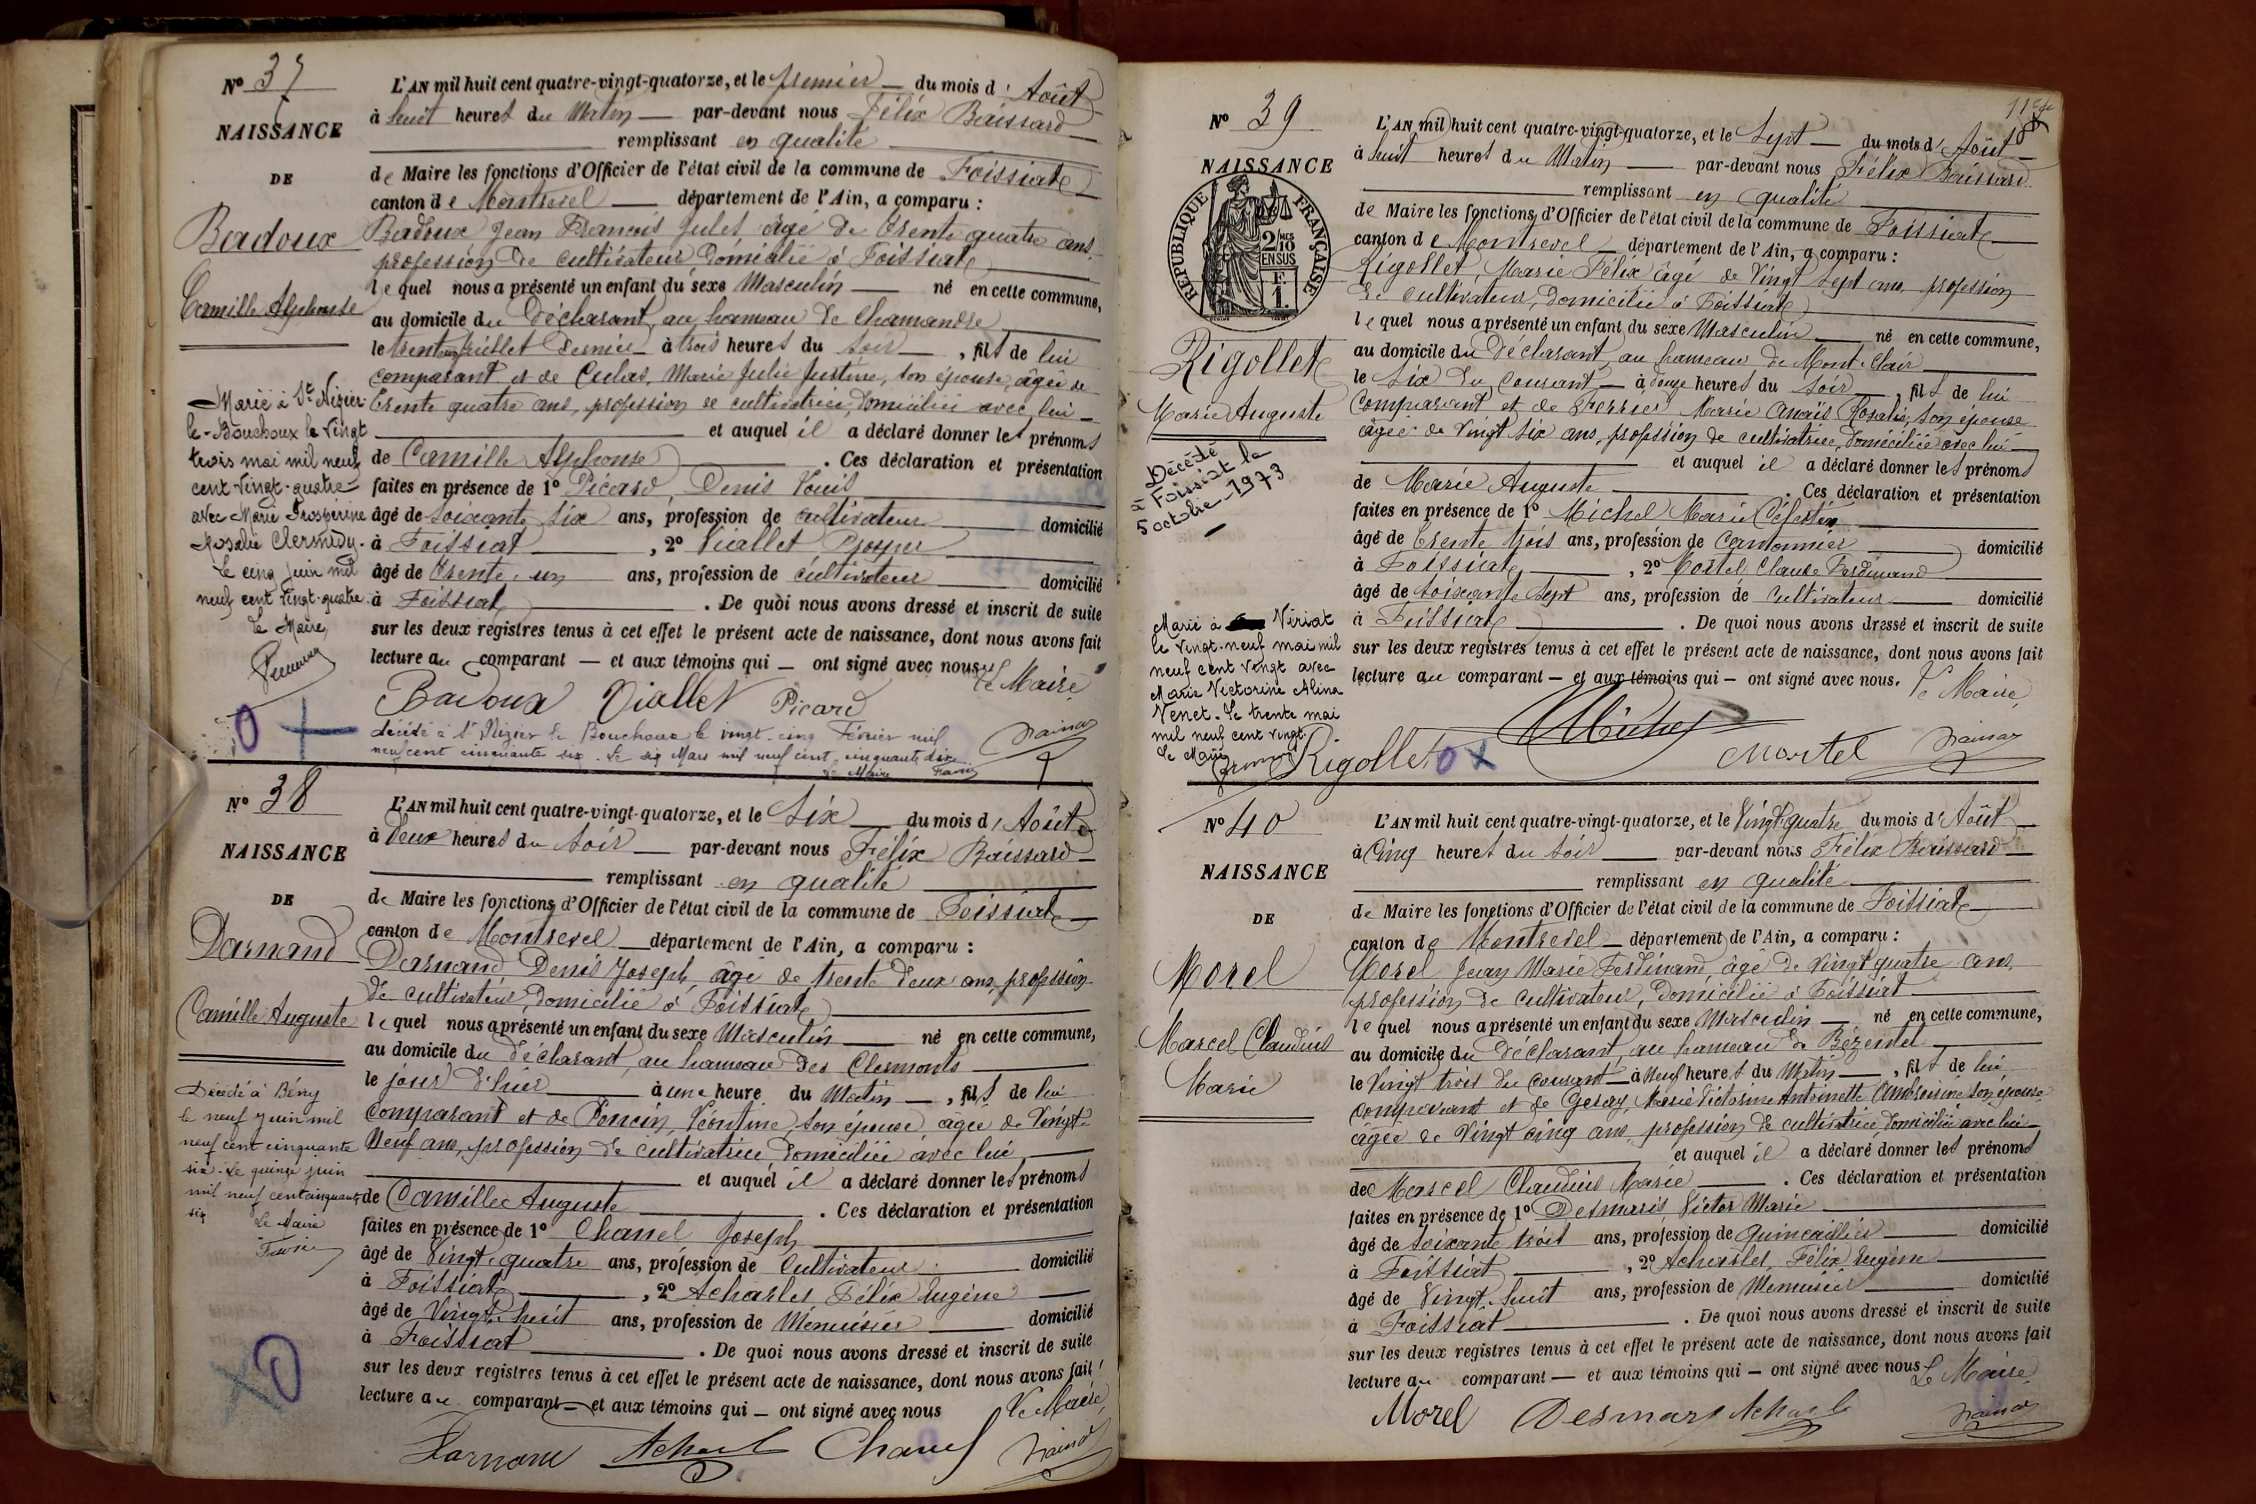 N° 37
NAISSANCE
DE
Badoux
Camille Alphonse
Marié à St Nizier
le-Bouchoux le vingt
trois mai mil neuf
cent vingt-quatre
avec Marie Prospérine
Rosalie Clermidy.
Le cinq juin mil
neuf cent vingt-quatre.
Le Maire,
L'AN mil huit cent quatre-vingt-quatorze, et le premier du mois d'Août
à huit heures du Matin par-devant nous Félix Boissard
remplissant en qualité
de Maire les fonctions d'Officier de l'état civil de la commune de Foissiat
canton de Montrevel département de l'Ain, a comparu :
Badoux Jean François Jules âgé de trente quatre ans,
profession de cultivateur domicilié à Foissiat
lequel nous a présenté un enfant du sexe Masculin né en cette commune,
au domicile du déclarant, au hameau de Chamandre
le trente un juillet dernier à trois heures du soir, fils de lui
comparant et de Culas, Marie Julie Justine, son épouse, âgée de
trente quatre ans, profession de cultivatrice, domiciliée avec lui
et auquel il a déclaré donner les prénoms
de Camille Alphonse. Ces déclaration et présentation
faites en présence de 1° Picard, Denis Louis
âgé de soixante six ans, profession de cultivateur domicilié
à Foissiat, 2° Viallet Prosper
âgé de trente-un ans, profession de cultivateur domicilié
à Foissiat. De quoi nous avons dressé et inscrit de suite
sur les deux registres tenus à cet effet le présent acte de naissance, dont nous avons fait
lecture au comparant — et aux témoins qui — ont signé avec nous
Le Maire
Badoux Viallet Picard
décédé à St Nizier le Bouchoux le vingt-cinq Février mil
neuf cent cinquante six. Le six Mars mil neuf cent cinquante six
Le Maire
N° 38
NAISSANCE
DE
Darnand
Camille Auguste
Décédé à Bény
le neuf juin mil
neuf cent cinquante
six. Le quinze juin
mil neuf cent cinquante
six
Le Maire
L'AN mil huit cent quatre-vingt-quatorze, et le six du mois d'Août
à deux heures du soir par-devant nous Félix Boissard
remplissant en qualité
de Maire les fonctions d'Officier de l'état civil de la commune de Foissiat
canton de Montrevel département de l'Ain, a comparu :
Darnand, Denis Joseph, âgé de trente deux ans, profession
de cultivateur, domicilié à Foissiat
lequel nous a présenté un enfant du sexe Masculin né en cette commune,
au domicile du déclarant, au hameau des Clermonts
le jour d'hier à une heure du Matin, fils de lui
comparant et de Poncin, Léontine, son épouse, âgée de vingt-
neuf ans, profession de cultivatrice, domiciliée avec lui,
et auquel il a déclaré donner les prénoms
de Camille Auguste. Ces déclaration et présentation
faites en présence de 1° Chanel Joseph
âgé de vingt-quatre ans, profession de cultivateur domicilié
à Foissiat, 2° Acharles Félix Eugène
âgé de vingt-huit ans, profession de Menuisier domicilié
à Foissiat. De quoi nous avons dressé et inscrit de suite
sur les deux registres tenus à cet effet le présent acte de naissance, dont nous avons fait
lecture au comparant — et aux témoins qui — ont signé avec nous
Le Maire
Darnand Chanel
11e
N° 39
NAISSANCE
RÉPUBLIQUE FRANÇAISE
2/10 MES
EN SUS
F.
1.
Rigollet
Marie Auguste
Décédé
à Foissiat le
5 octobre-1973
Marié à Viriat
le vingt-neuf mai mil
neuf cent vingt avec
Marie Victorine Alina
Venet. Le trente mai
mil neuf cent vingt.
Le Maire
L'AN mil huit cent quatre-vingt-quatorze, et le sept du mois d'Août
à huit heures du Matin par-devant nous Félix Boissard
remplissant en qualité
de Maire les fonctions d'Officier de l'état civil de la commune de Foissiat
canton de Montrevel département de l'Ain, a comparu :
Rigollet, Marie Félix âgé de vingt sept ans, profession
de cultivateur, domicilié à Foissiat
lequel nous a présenté un enfant du sexe Masculin né en cette commune,
au domicile du déclarant, au hameau de Mont-Clair
le six du courant à douze heures du soir, fils de lui
comparant et de Ferrier Marie Anaïs Rosalie, son épouse
âgée de vingt six ans, profession de cultivatrice, domiciliée avec lui
et auquel il a déclaré donner les prénoms
de Marie Auguste. Ces déclaration et présentation
faites en présence de 1° Michel Marie Célestin
âgé de trente trois ans, profession de cantonnier domicilié
à Foissiat, 2° Mortel Claude Ferdinand
âgé de soixante sept ans, profession de cultivateur domicilié
à Foissiat. De quoi nous avons dressé et inscrit de suite
sur les deux registres tenus à cet effet le présent acte de naissance, dont nous avons fait
lecture au comparant — et aux témoins qui — ont signé avec nous.
Le Maire,
Rigollet Michel Mortel
N° 40
NAISSANCE
DE
Morel
Marcel Claudius
Marie
L'AN mil huit cent quatre-vingt-quatorze, et le vingt-quatre du mois d'Août
à cinq heures du soir par-devant nous Félix Boissard
remplissant en qualité
de Maire les fonctions d'Officier de l'état civil de la commune de Foissiat
canton de Montrevel département de l'Ain, a comparu :
Morel Jean Marie Ferdinand, âgé de vingt quatre ans,
profession de cultivateur, domicilié à Foissiat
lequel nous a présenté un enfant du sexe Masculin né en cette commune,
au domicile du déclarant, au hameau de Bézentet
le vingt trois du courant à neuf heures du Matin, fils de lui,
comparant et de Geray, Marie Victorine Antoinette Ambroisine son épouse
âgée de vingt cinq ans, profession de cultivatrice, domiciliée avec lui
et auquel il a déclaré donner les prénoms
de Marcel Claudius Marie. Ces déclaration et présentation
faites en présence de 1° Desmaris Victor Marie
âgé de soixante trois ans, profession de quincaillier domicilié
à Foissiat, 2° Acharles, Félix Eugène
âgé de vingt-huit ans, profession de Menuisier domicilié
à Foissiat. De quoi nous avons dressé et inscrit de suite
sur les deux registres tenus à cet effet le présent acte de naissance, dont nous avons fait
lecture au comparant — et aux témoins qui — ont signé avec nous
Le Maire.
Morel Desmaris